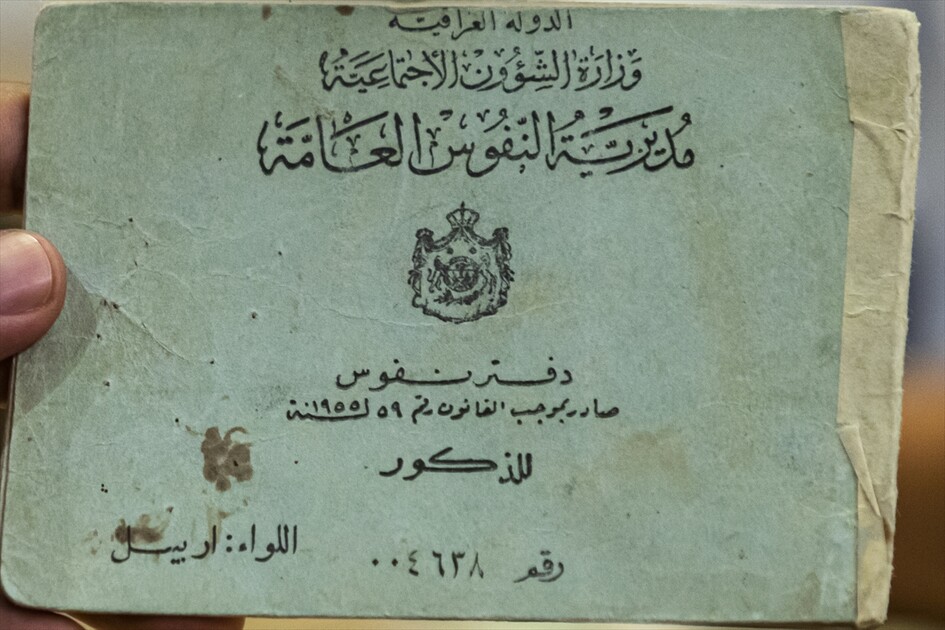 الدولة العراقية
وَزارَةُ الشّؤُونِ الأجتماعِيَّةِ
مُديريَّةُ النّفُوسِ العَامَّة
دفتر نفوس
صادر بموجب القانون رقم ٥٩ لسنة ١٩٥٥
للذكور
رقم ٠٠٤٦٣٨
اللواء: اربيل